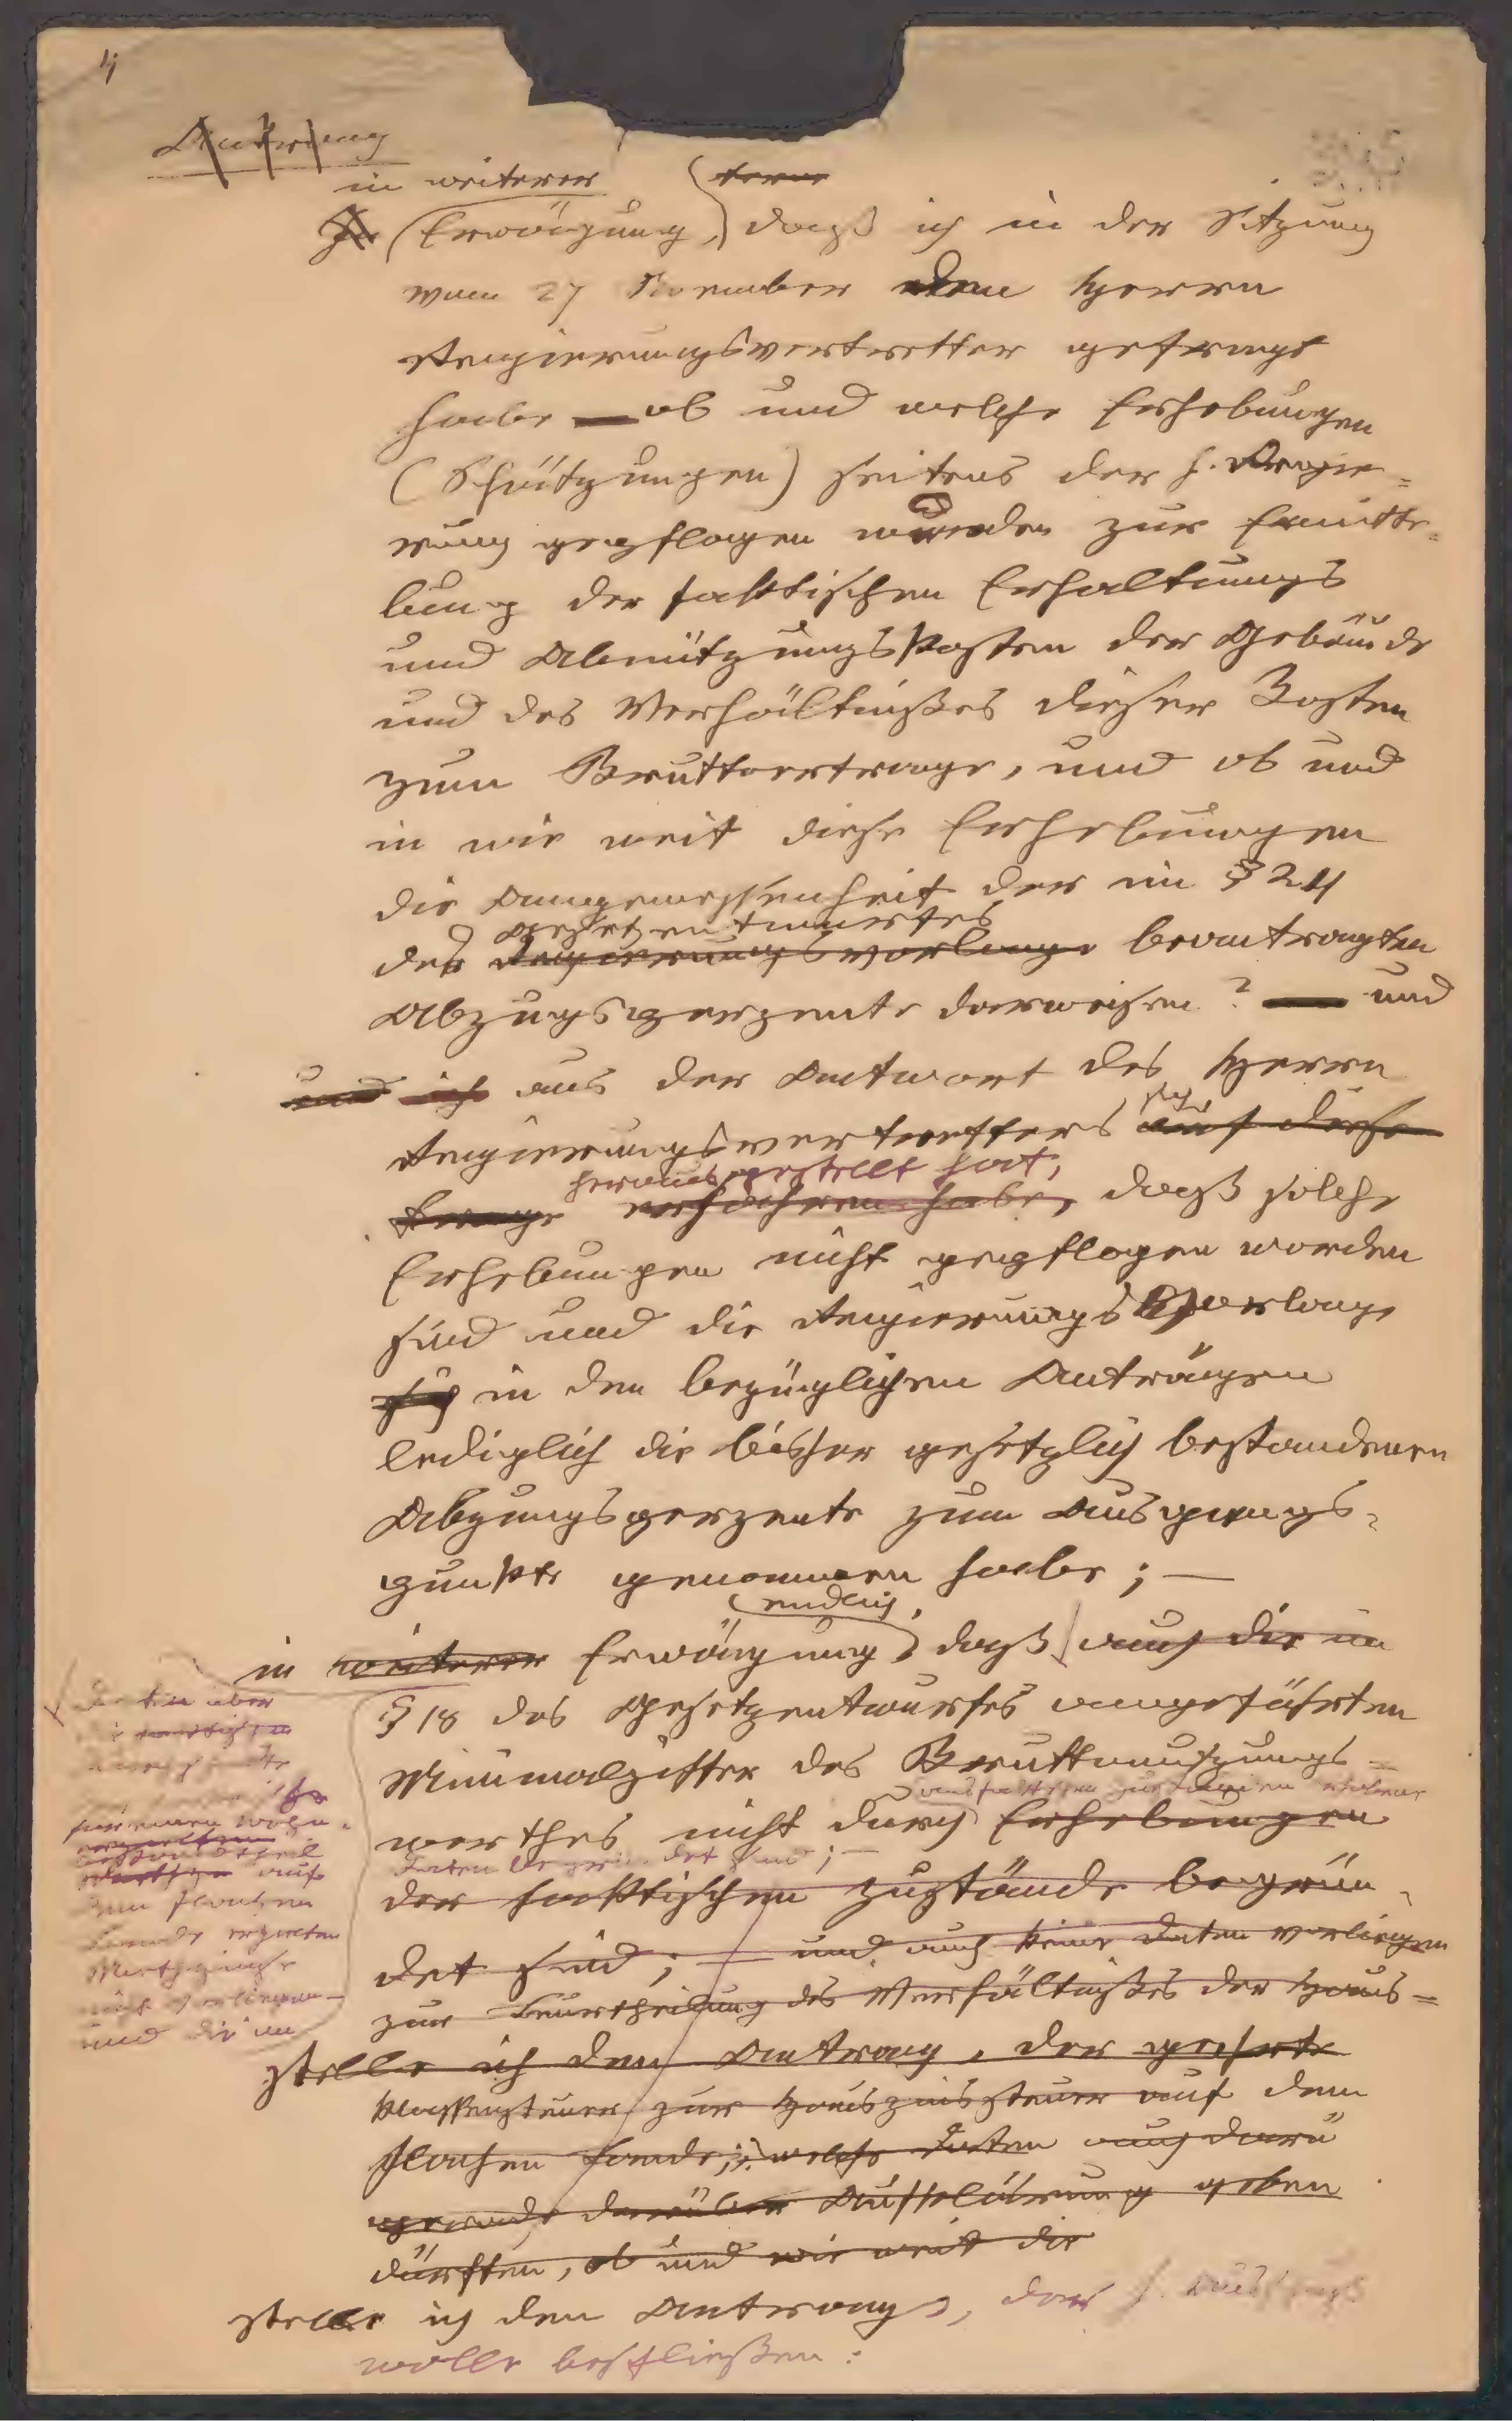 4
Antrag
in weiterer
ferner
In Erwägung, daß ich in der Sitzung
vom 27 November den Herrn
Regierungsvertretter gefragt
habe — ob und welche Erhebungen
(Schätzungen) seitens der h. Regie=
rung gepflogen wurden zur Ermitte=
lung der faktischen Erhaltungs
und Abnützungskosten der Gebäude
und des Verhältnißes dieser Kosten
zum Bruttoertrage, und ob und
in wie weit diese Erhebungen
die Angemessenheit der im § 24
Gesetzentwurfes
des Regierungsvorlage beantragten
Abzugsperzente darweisen? — und
und ich aus der Antwort des Herrn
sich
Regierungsvertretters auf diese
herausgestellt hat,
Frage erfahren habe, daß solche
Erhebungen nicht gepflogen worden
sind und die Regierungsvorlage
sich in den bezüglichen Anträgen
lediglich die bisher gesetzlich bestandenen
Abzugsperzente zum Ausgangs=
punkte genommen habe; —
endlich,
in weiterer Erwägung, daß auch die im
§ 18 des Gesetzentwurfes angeführten
Minimalziffer des Bruttonutzungs=
werthes nicht durch Erhebungen
Daten begründet sind; —
der faktischen Zustände begrün=
det sind; — und auch keine Daten vorliegen
zur Beurtheilung des Verhältnißes der Haus=
stelle ich den Antrag, der geehrte
klassensteuer zur Hauszinssteuer auf dem
flachen Lande; welche Daten auch darü
gerade darüber Aufklärung geben
dürften, ob und wie weit die
stelle ich den Antrag, das h.
wolle beschließen:
Daten über
für einen Wohn=
bestandtheil
auf
dem flachen
Lande erzielten
Miethzinse
nicht vorliegen —
und die im